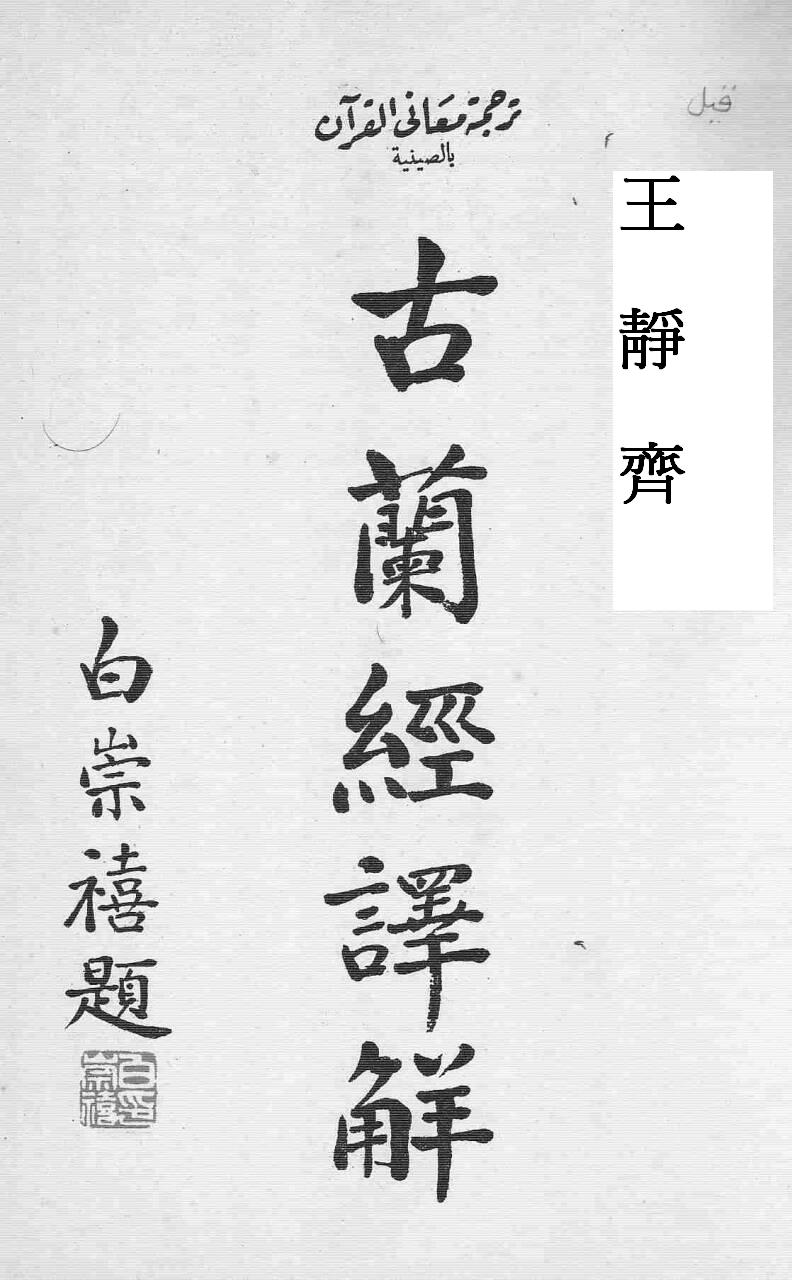 ترجمة معانى القرآن
بالصينية
王靜齊
古蘭經譯解
白崇禧題
白崇禧印